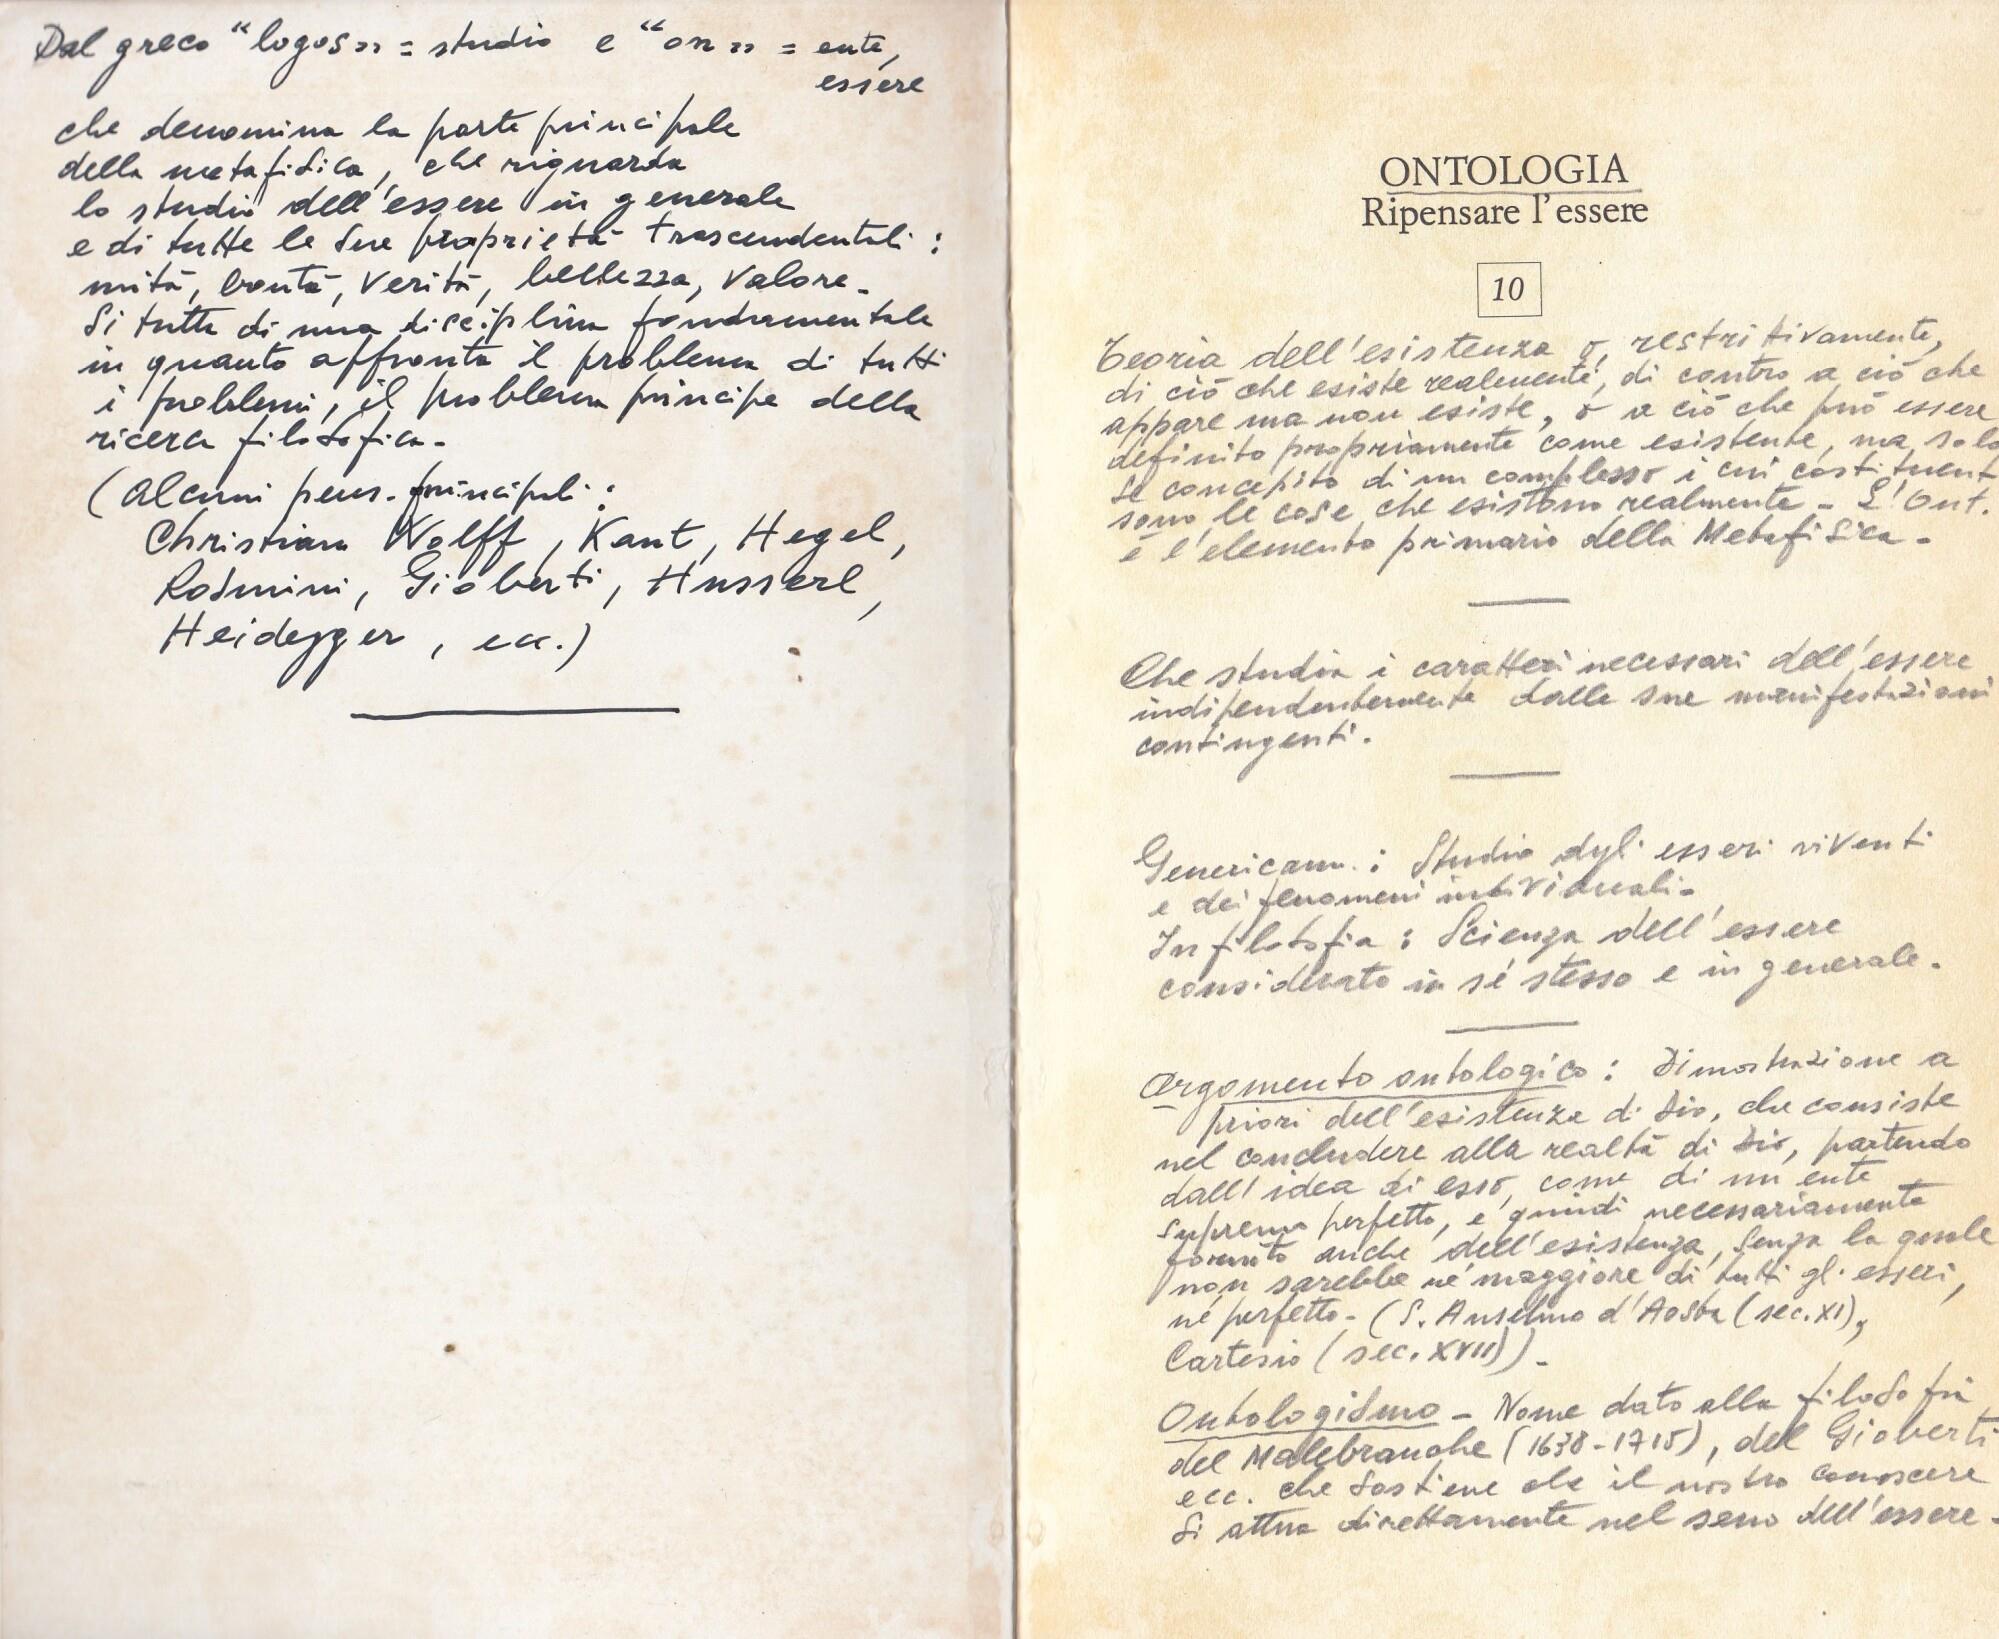 Dal greco “logos„ = studio e “on„ = ente,
essere
che denomina la parte principale
della metafisica, che riguarda
lo studio dell'essere in generale
e di tutte le sue proprietà trascendentali :
unità, bontà, verità, bellezza, valore -
Si tratta di una disciplina fondamentale
in quanto affronta il problema di tutti
i problemi, il problema principe della
ricerca filosofica -
(Alcuni pens. principali :
Christian Wolff, Kant, Hegel,
Rosmini, Gioberti, Husserl,
Heidegger, ecc.)
ONTOLOGIA
Ripensare l'essere
10
Teoria dell'esistenza o, restrittivamente,
di ciò che esiste realmente, di contro a ciò che
appare ma non esiste, o a ciò che può essere
definito propriamente come esistente, ma solo
se concepito di un complesso i cui costituent
sono le cose che esistono realmente - L'Ont.
è l'elemento primario della Metafisica -
Che studia i caratteri necessari dell'essere
indipendentemente dalle sue manifestazioni
contingenti.
Genericam. : Studio degli esseri viventi
e dei fenomeni individuali -
In filosofia : Scienza dell'essere
considerato in sé stesso e in generale.
Argomento ontologico : Dimostrazione a
priori dell'esistenza di Dio, che consiste
nel concludere alla realtà di Dio, partendo
dall'idea di esso, come di un ente
supremo perfetto, e quindi necessariamente
fornito anche dell'esistenza, senza la quale
non sarebbe né maggiore di tutti gli esseri,
né perfetto - (S. Anselmo d'Aosta (sec. XI),
Cartesio (sec. XVII)) -
Ontologismo - Nome dato alla filosofia
del Malebranche (1638-1715), del Gioberti
ecc. che sostiene che il nostro conoscere
si attua direttamente nel seno dell'essere -